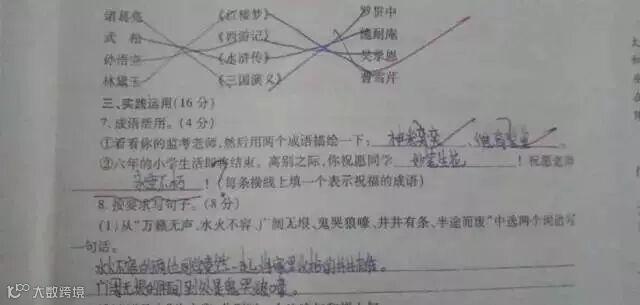 诸葛亮 《红楼梦》 罗贯中
武松 《西游记》 施耐庵
孙悟空 《水浒传》 吴承恩
林黛玉 《三国演义》 曹雪芹
三、实践运用(16分)
7. 成语活用。(4分)
①看看你的监考老师,然后用两个成语描绘一下:神采奕奕、
②六年的小学生活即将结束。离别之际,你祝愿同学 妙笔生花 !祝愿老师
永垂不朽 !(每条横线上填一个表示祝福的成语)
8. 按要求写句子。(8分)
(1)从“万籁无声、水火不容、广阔无垠、鬼哭狼嚎、井井有条、半途而废”中选两个词语写
一句话。
水火不容的两位同学竟然
广阔无垠的 到处是鬼哭狼嚎。
大数跨境